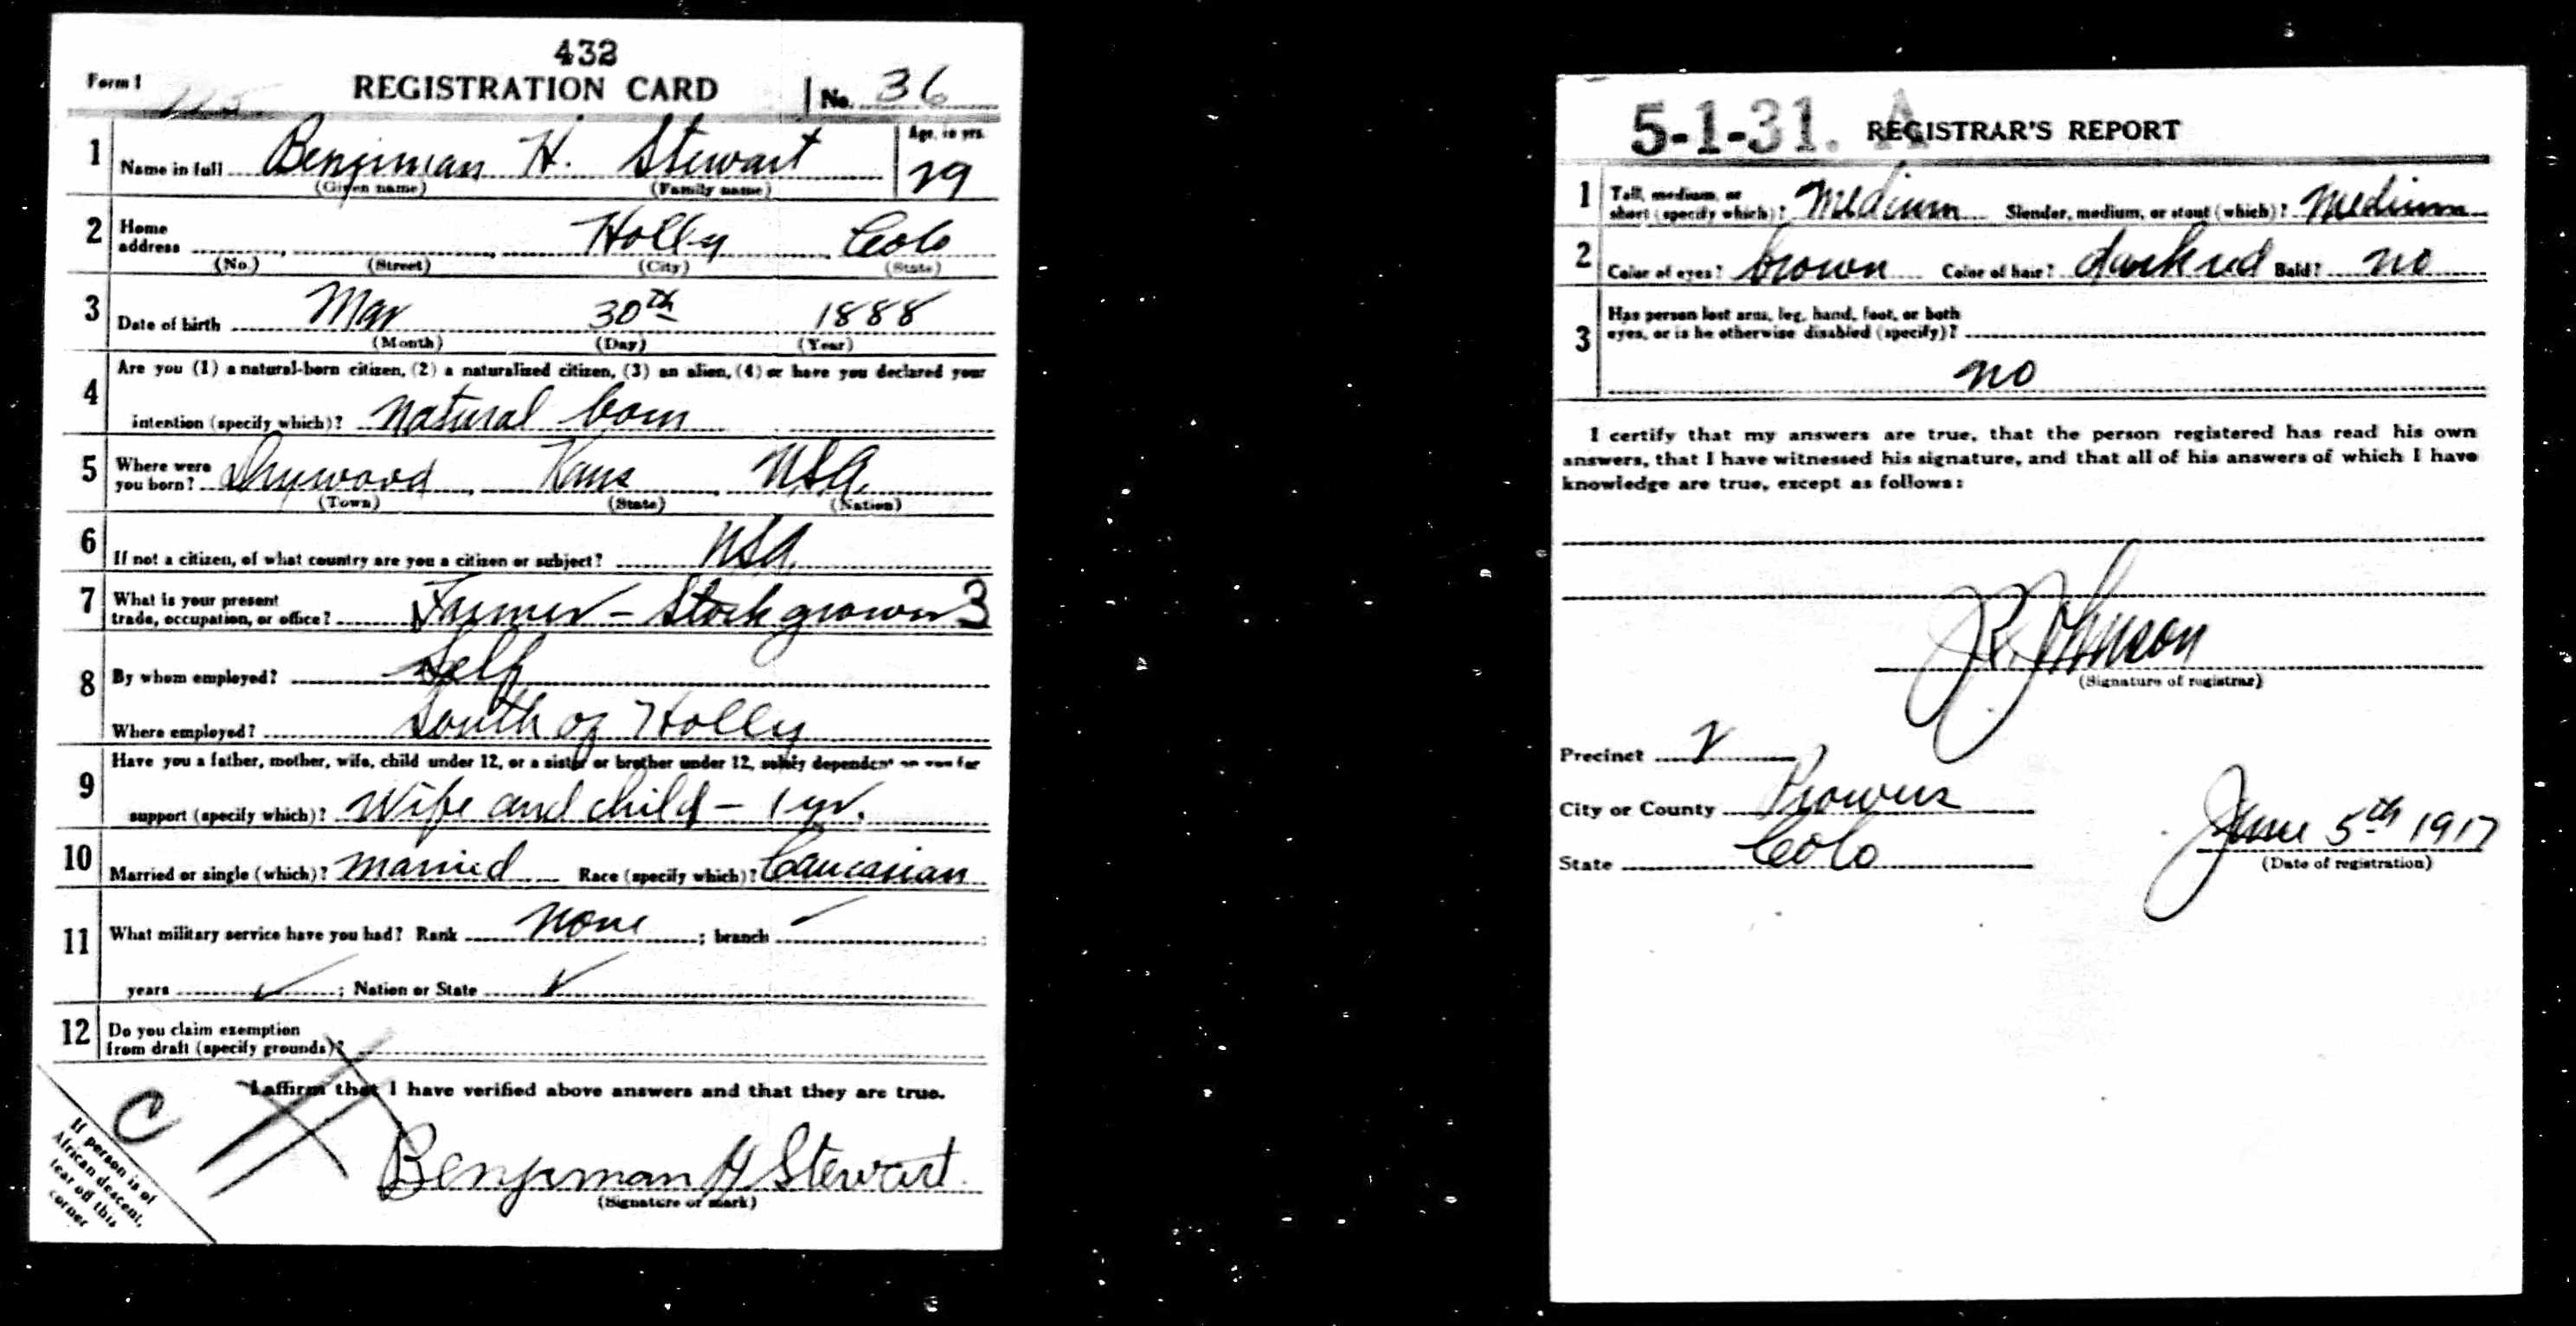 432
Form 1 REGISTRATION CARD No. 36
1 Name in full Benjiman H. Stewart Age, in yrs. 29
(Given name) (Family name)
2 Home address Holly Colo
(No.) (Street) (City) (State)
3 Date of birth Mar 30th 1888
(Month) (Day) (Year)
4 Are you (1) a natural-born citizen, (2) a naturalized citizen, (3) an alien, (4) or have you declared your
intention (specify which)? Natural born
5 Where were you born? Drywood Kans USA.
(Town) (State) (Nation)
6 If not a citizen, of what country are you a citizen or subject? USA.
7 What is your present trade, occupation, or office? Farmer - Stock grower 3
8 By whom employed? Self
Where employed? South of Holly
9 Have you a father, mother, wife, child under 12, or a sister or brother under 12, solely dependent on you for
support (specify which)? Wife and child - 1 yr.
10 Married or single (which)? Married Race (specify which)? Caucasian
11 What military service have you had? Rank None ; branch
years ; Nation or State
12 Do you claim exemption
from draft (specify grounds)?
I affirm that I have verified above answers and that they are true.
Benjiman H Stewart
(Signature or mark)
C
If person is of
African descent,
tear off this
corner
5-1-31. A REGISTRAR'S REPORT
1 Tall, medium, or
short (specify which)? Medium Slender, medium, or stout (which)? Medium
2 Color of eyes? brown Color of hair? dark red Bald? no
3 Has person lost arm, leg, hand, foot, or both
eyes, or is he otherwise disabled (specify)?
no
I certify that my answers are true, that the person registered has read his own
answers, that I have witnessed his signature, and that all of his answers of which I have
knowledge are true, except as follows:
Johnson
(Signature of registrar)
Precinct
City or County Prowers
State Colo
June 5th 1917
(Date of registration)